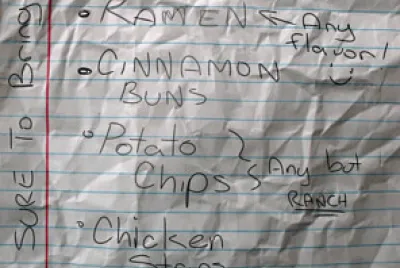 SURE TO Bring
• RAMEN ← Any
flavor! :)
• CINNAMON
BUNS
• Potato
Chips } Any but
RANCH
• Chicken